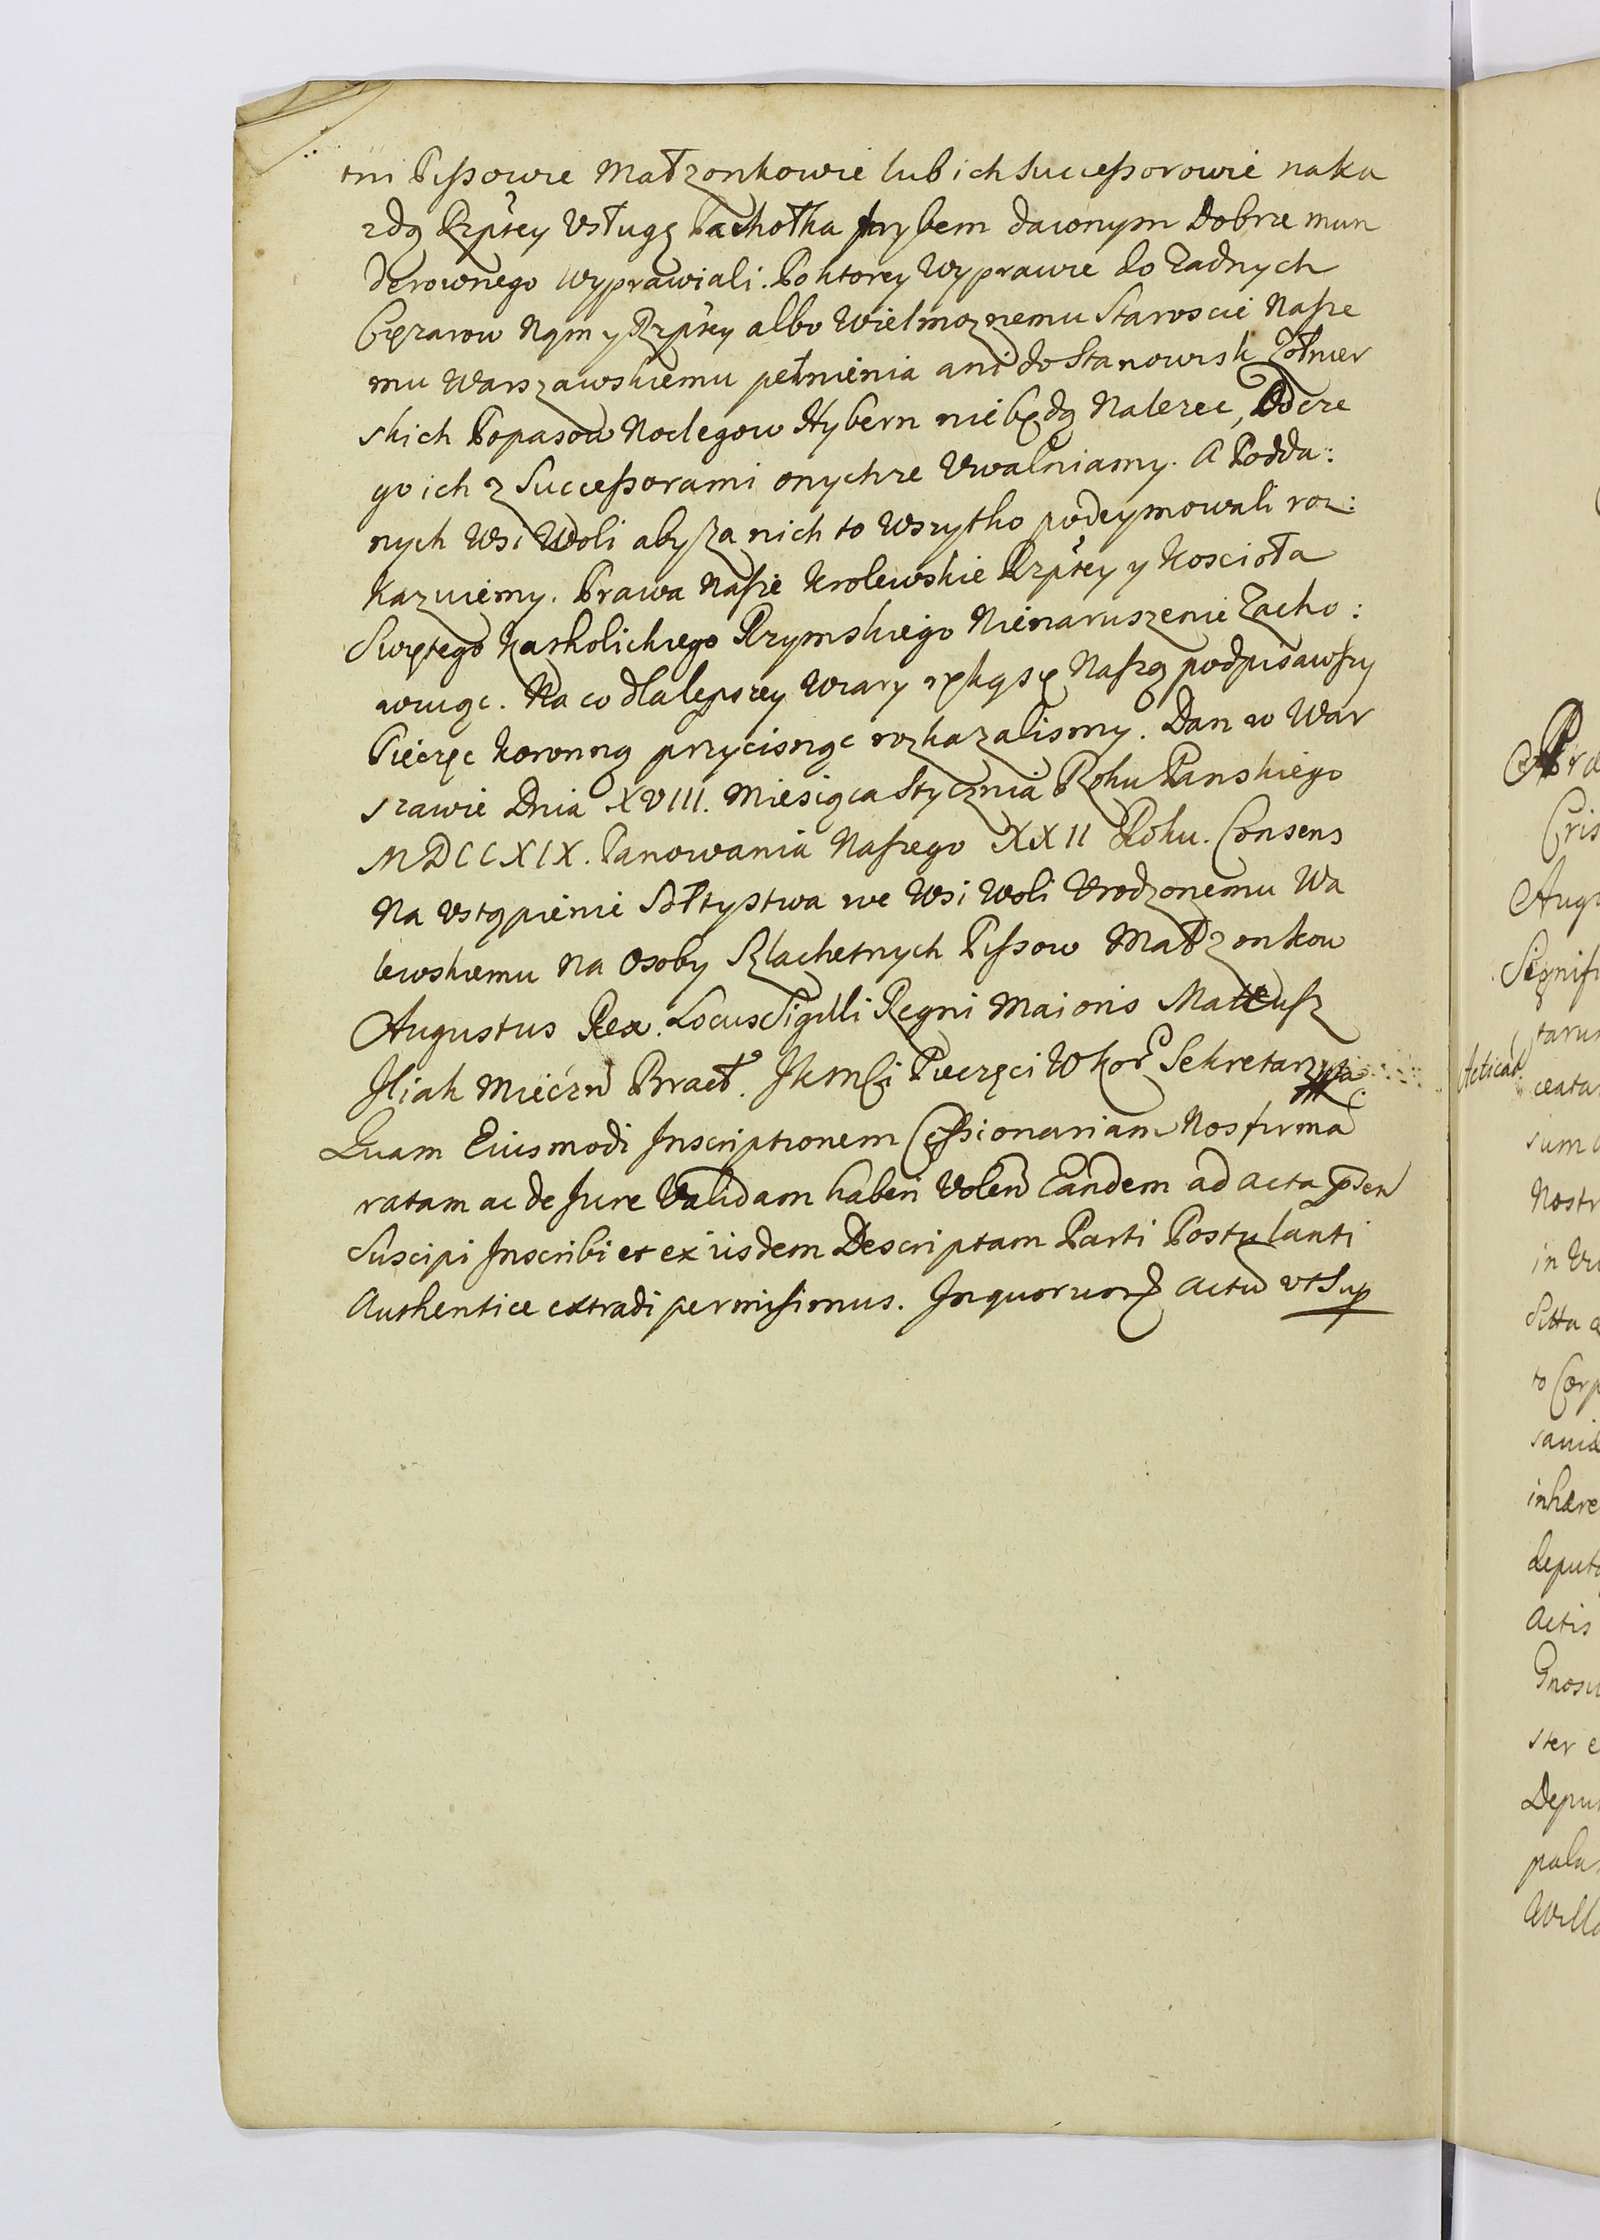 tni Pissowie Małzonkowie lub ich Successorowie naka
zdą Rzptey Vsługę Pachołka trybem dawnym Dobrze mun
derownego wyprawiali. Po ktorey Wyprawie do Zadnych
Cięzarow Nąm y Rzptey albo Wielmoznemu Staroscie Nasze
mu Warszawskiemu pełnienia ani do Stanowisk Zołnier
skich Popasow Noclegow Hybern nie będą Nalezec, Od cze
go ich z Successorami onychze Uwalniamy. A Podda:
nych Wsi Woli aby za nich to Wszytko podeymowali roz:
kazuiemy. Prawa Nasze Krolewskie Rzptey y Koscioła
Swiętego Katholickiego Rzymskiego Nienaruszenie Zacho:
wuiąc. Na co dla lepszey Wiary ręką się Naszą podpisawszy
Pieczęc Koronną przycisnąc rozkazalismy. Dan w War
szawie Dnia XVIII. Miesiąca Stycznia Roku Panskiego
MDCCXIX. Panowania Naszego XXII Roku. Consens
Na Vstąpienie Sołtystwa we Wsi Woli Urodzonemu Wa
lewskiemu Na Osoby Szlachetnych Pissow Małzonkow
Augustus Rex. Locus Sigilli Regni Maioris Matteusz
Iliak Mieczn Bracł. JKMCi Pieczęci W Kor Sekretarz
Quam Eiusmodi Inscriptionem Cessionariam Nos firma
ratam ac de Jure Validam haben Volen Eandem ad acta psen
Suscipi Inscribi et ex iisdem Descriptam Parti Postulanti
Authentice extradi permisimus. In quorum Actu vt Sup
Acticat
Cris
Augu
Signifi
tarum
ceata
sum
Nostr
in Vi
Sitta
to Corp
savia
inhære
deputa
Actis
Gnosu
ster e
Depu
pala
Avilla